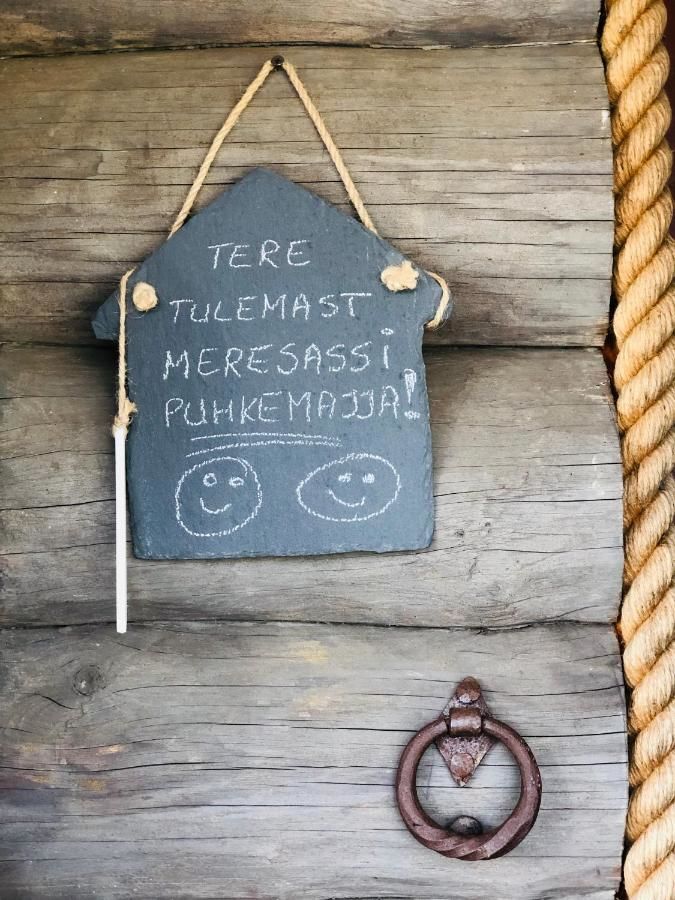 TERE
TULEMAST
MERESASSi
PUHKEMAJJA!